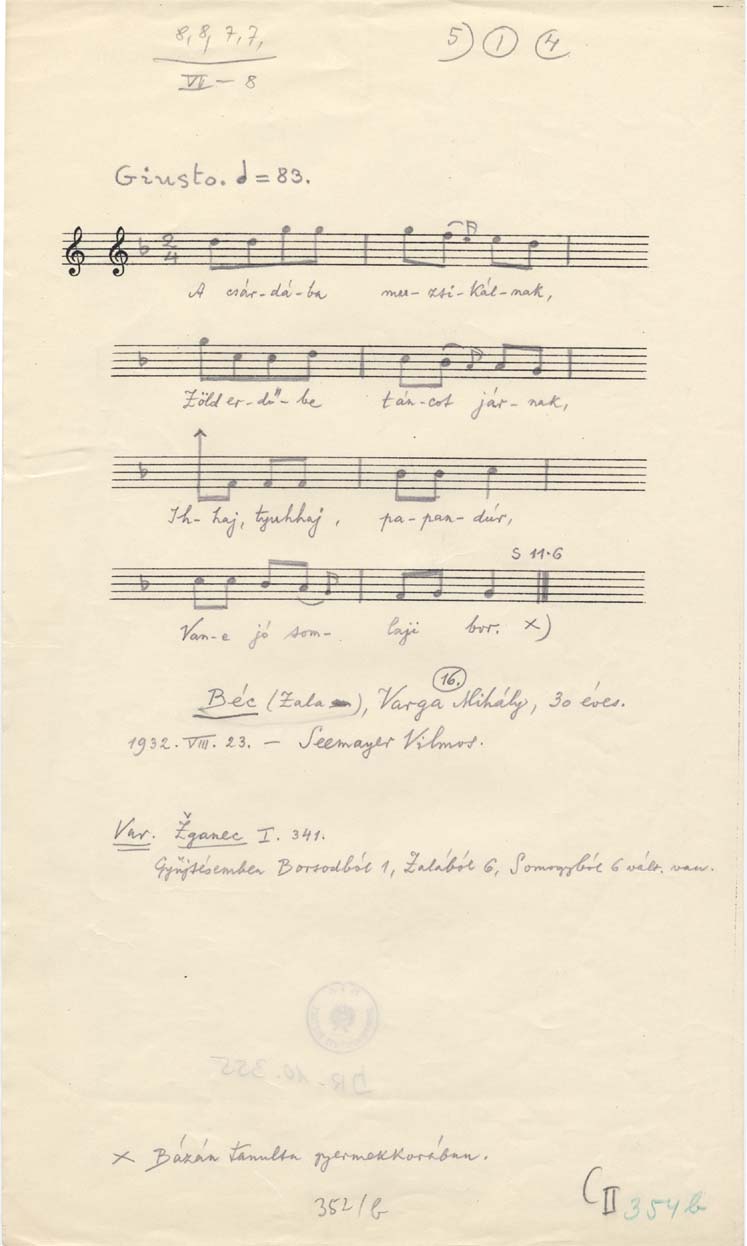 8, 8, 7, 7,
VI – 8
5) 1 4
Giusto. = 83.
2
4
A csár-dá-ba mu-zsi-kál-nak,
Zöld er-dű-be tán-cot jár-nak,
Ih-haj, tyuhhaj, pa-pan-dúr,
S 11-6
Van-e jó som- laji bor. x)
16.
Béc (Zala), Varga Mihály, 30 éves.
1932. VIII. 23. – Seemayer Vilmos.
Var. Žganec I. 341.
Gyűjtésemben Borsodból 1, Zalából 6, Somogyból 6 vált. van.
DR-10.355
x Bázán tanulta gyermekkorában.
352/b
C II 354 b